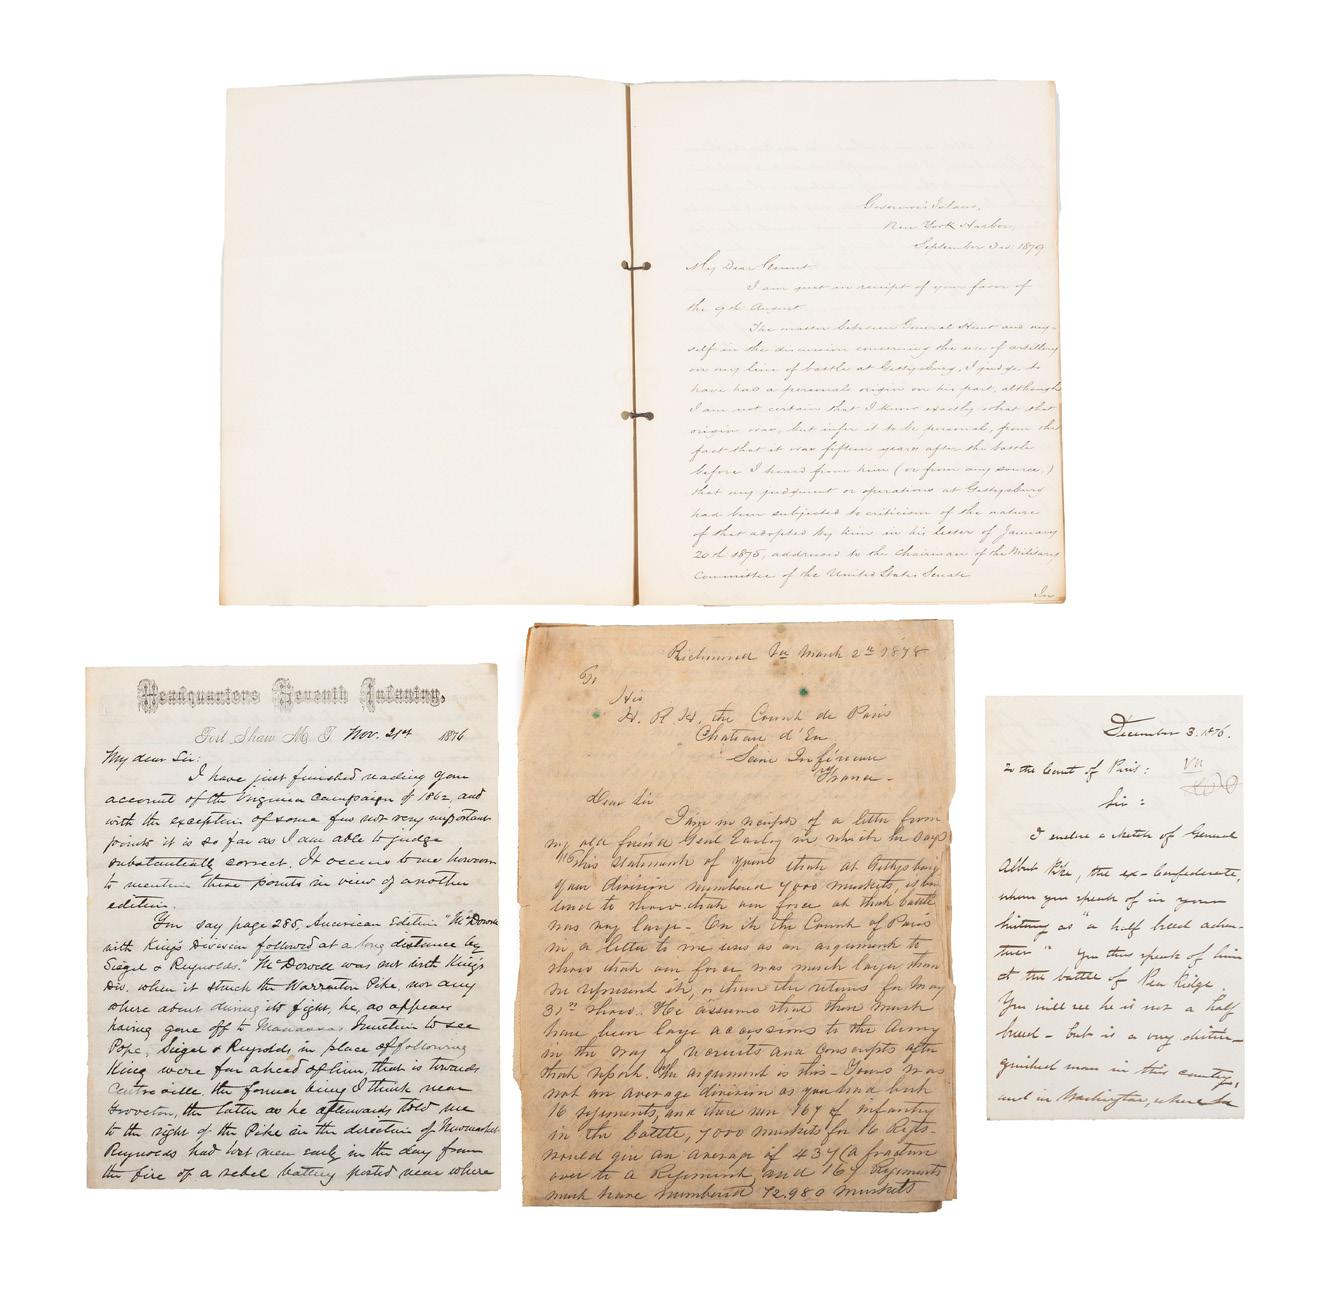 Governor's Island,
New York Harbor,
September 1879
My Dear Count
I am just in receipt of your favor of
the 9th August
The matter between General Hunt and my-
self in the discussion concerning the use of artillery
on my line of battle at Gettysburg, I judge to
have had a personal origin on his part, although
I am not certain that I know exactly what that
origin was, but infer it to be personal, from the
fact that it was fifteen years after the battle
before I heard from him (or from any source,)
that my judgment or operations at Gettysburg
had been subjected to criticism of the nature
of that adopted by him in his letter of January
20th 1875, addressed to the Chairman of the Military
Committee of the United States Senate
In
Headquarters Seventh Infantry,
Fort Shaw M. T. Nov. 21st 1876
My dear Sir:
I have just finished reading your
account of the Virginia Campaign of 1862, and
with the exception of some few not very important
points it is so far as I am able to judge
substantially correct. It occurs to me however
to mention these points in view of another
edition.
You say page 285, American Edition "McDowell
with King's Division followed at a long distance by
Siegel & Reynolds." McDowell was not with King's
Div. when it struck the Warrenton Pike, nor any
where about during its fight, he, as appears
having gone off to Manassas Junction to see
Pope, Siegel & Reynolds in place of following
King were far ahead of him, that is towards
Centreville, the former being I think near
Groveton, the latter as he afterwards told me
to the right of the Pike in the direction of Newmarket
Reynolds had lost men early in the day from
the fire of a rebel battery posted near where
Richmond Va March 2nd 1878
To
His
H. R. H. the Count de Paris
Chateau d'Eu
Seine Inférieure
France -
Dear Sir
I am in receipt of a letter from
my old friend Genl Early in which he says
"This statement of yours that at Gettysburg
your division numbered 7000 muskets, is
used to show that our force at that battle
was very large - On it the Count of Paris
in a letter to me uses as an argument to
show that our force was much larger than
we represent it, or than the returns for May
31st show. He assumes that there must
have been large accessions to the Army
in the way of recruits and conscripts after
that report. The argument is this - Yours was
not an average division as you had but
16 regiments, and there were 167 of infantry
in the battle, 7000 muskets for 16 Regts.
would give an average of 437 (a fraction
over to a Regiment, and 167 Regiments
must have numbered 72.980 muskets
December 3. 1876.
To the Count of Paris: VII
Sir:
I enclose a sketch of General
Albert Pike, the ex-Confederate,
whom you speak of in your
history as "a half breed adven-
turer" You thus speak of him
at the battle of Pea Ridge.
You will see he is not a half
breed - but is a very distin-
guished man in this country,
and in Washington, where he